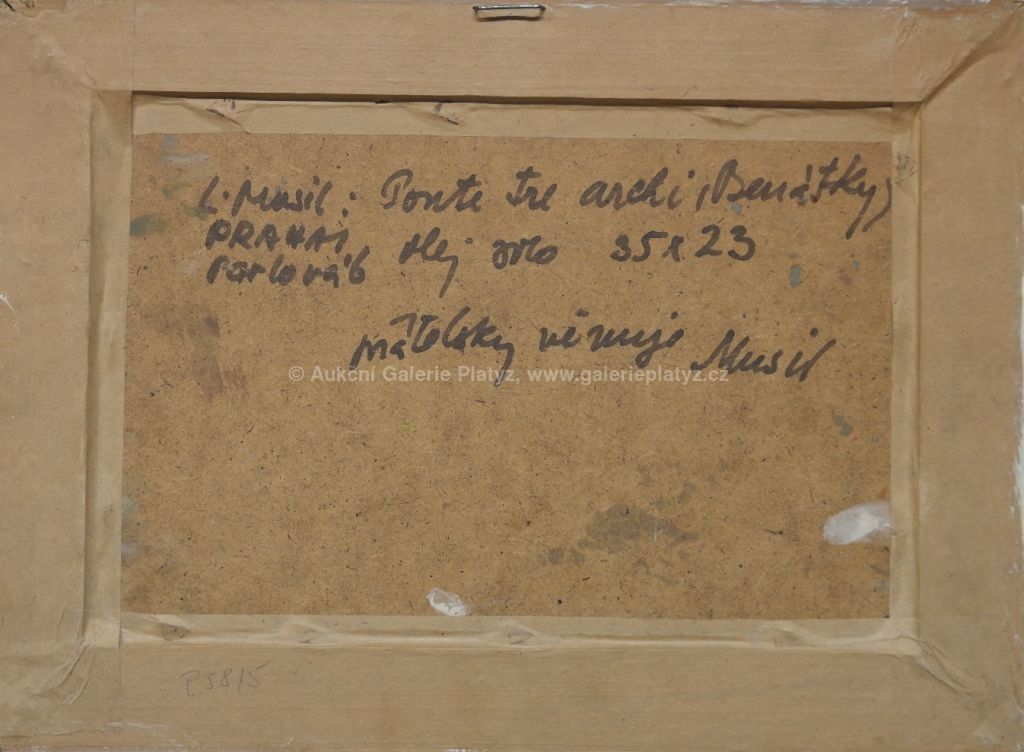 L. Musil: Ponte tre archi (Benátky)
PRAHA1, olej 35x23
přátelsky věnuje Musil
© Aukcní Galerie Platyz, www.galerieplatyz.cz
P58/5